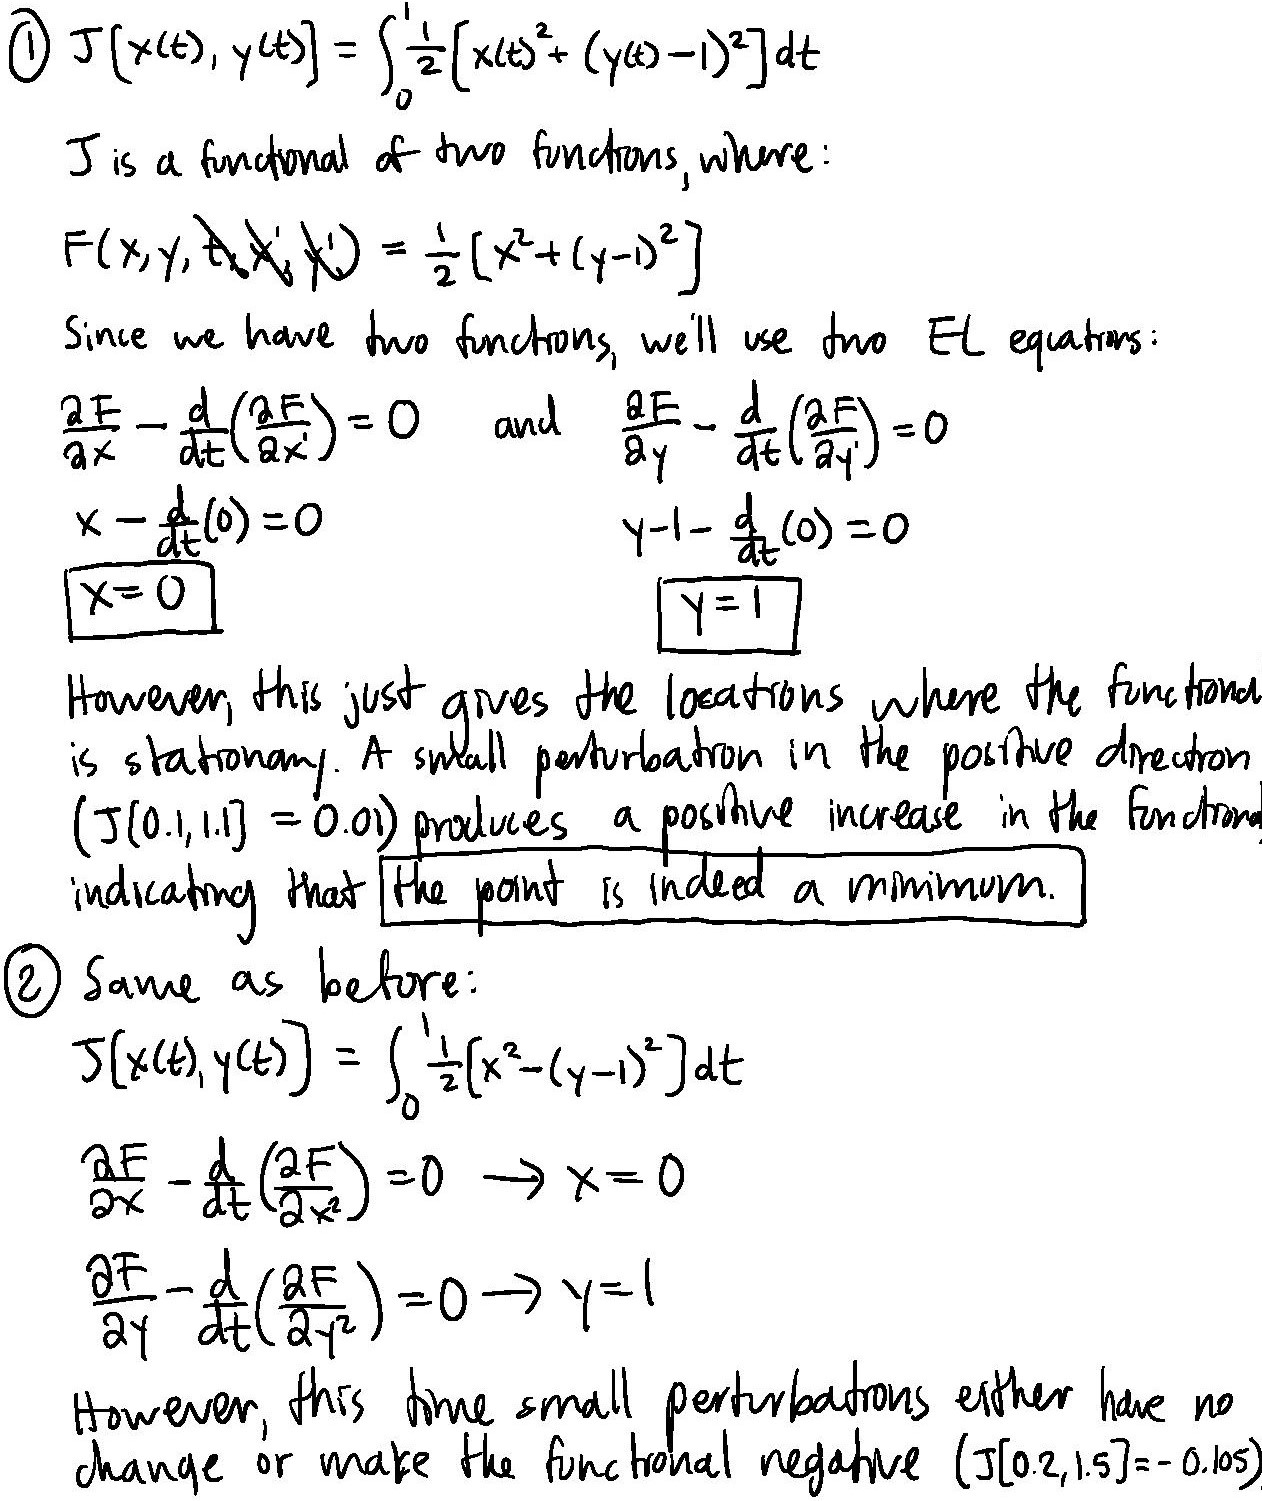 ① J[x(t), y(t)] = ∫₀¹ 1/2 [x(t)² + (y(t) - 1)²] dt
J is a functional of two functions, where:
F(x, y, t, x', y') = 1/2 [x² + (y-1)²]
Since we have two functions, we'll use two EL equations:
∂F/∂x - d/dt (∂F/∂x') = 0 and ∂F/∂y - d/dt (∂F/∂y') = 0
x - d/dt (0) = 0 y-1 - d/dt (0) = 0
x = 0 y = 1
However, this just gives the locations where the functional
is stationary. A small perturbation in the positive direction
(J[0.1, 1.1] = 0.01) produces a positive increase in the functional,
indicating that the point is indeed a minimum.
② Same as before:
J[x(t), y(t)] = ∫₀¹ 1/2 [x² - (y-1)²] dt
∂F/∂x - d/dt (∂F/∂x²) = 0 → x = 0
∂F/∂y - d/dt (∂F/∂y²) = 0 → y = 1
However, this time small perturbations either have no
change or make the functional negative (J[0.2, 1.5] = - 0.105)